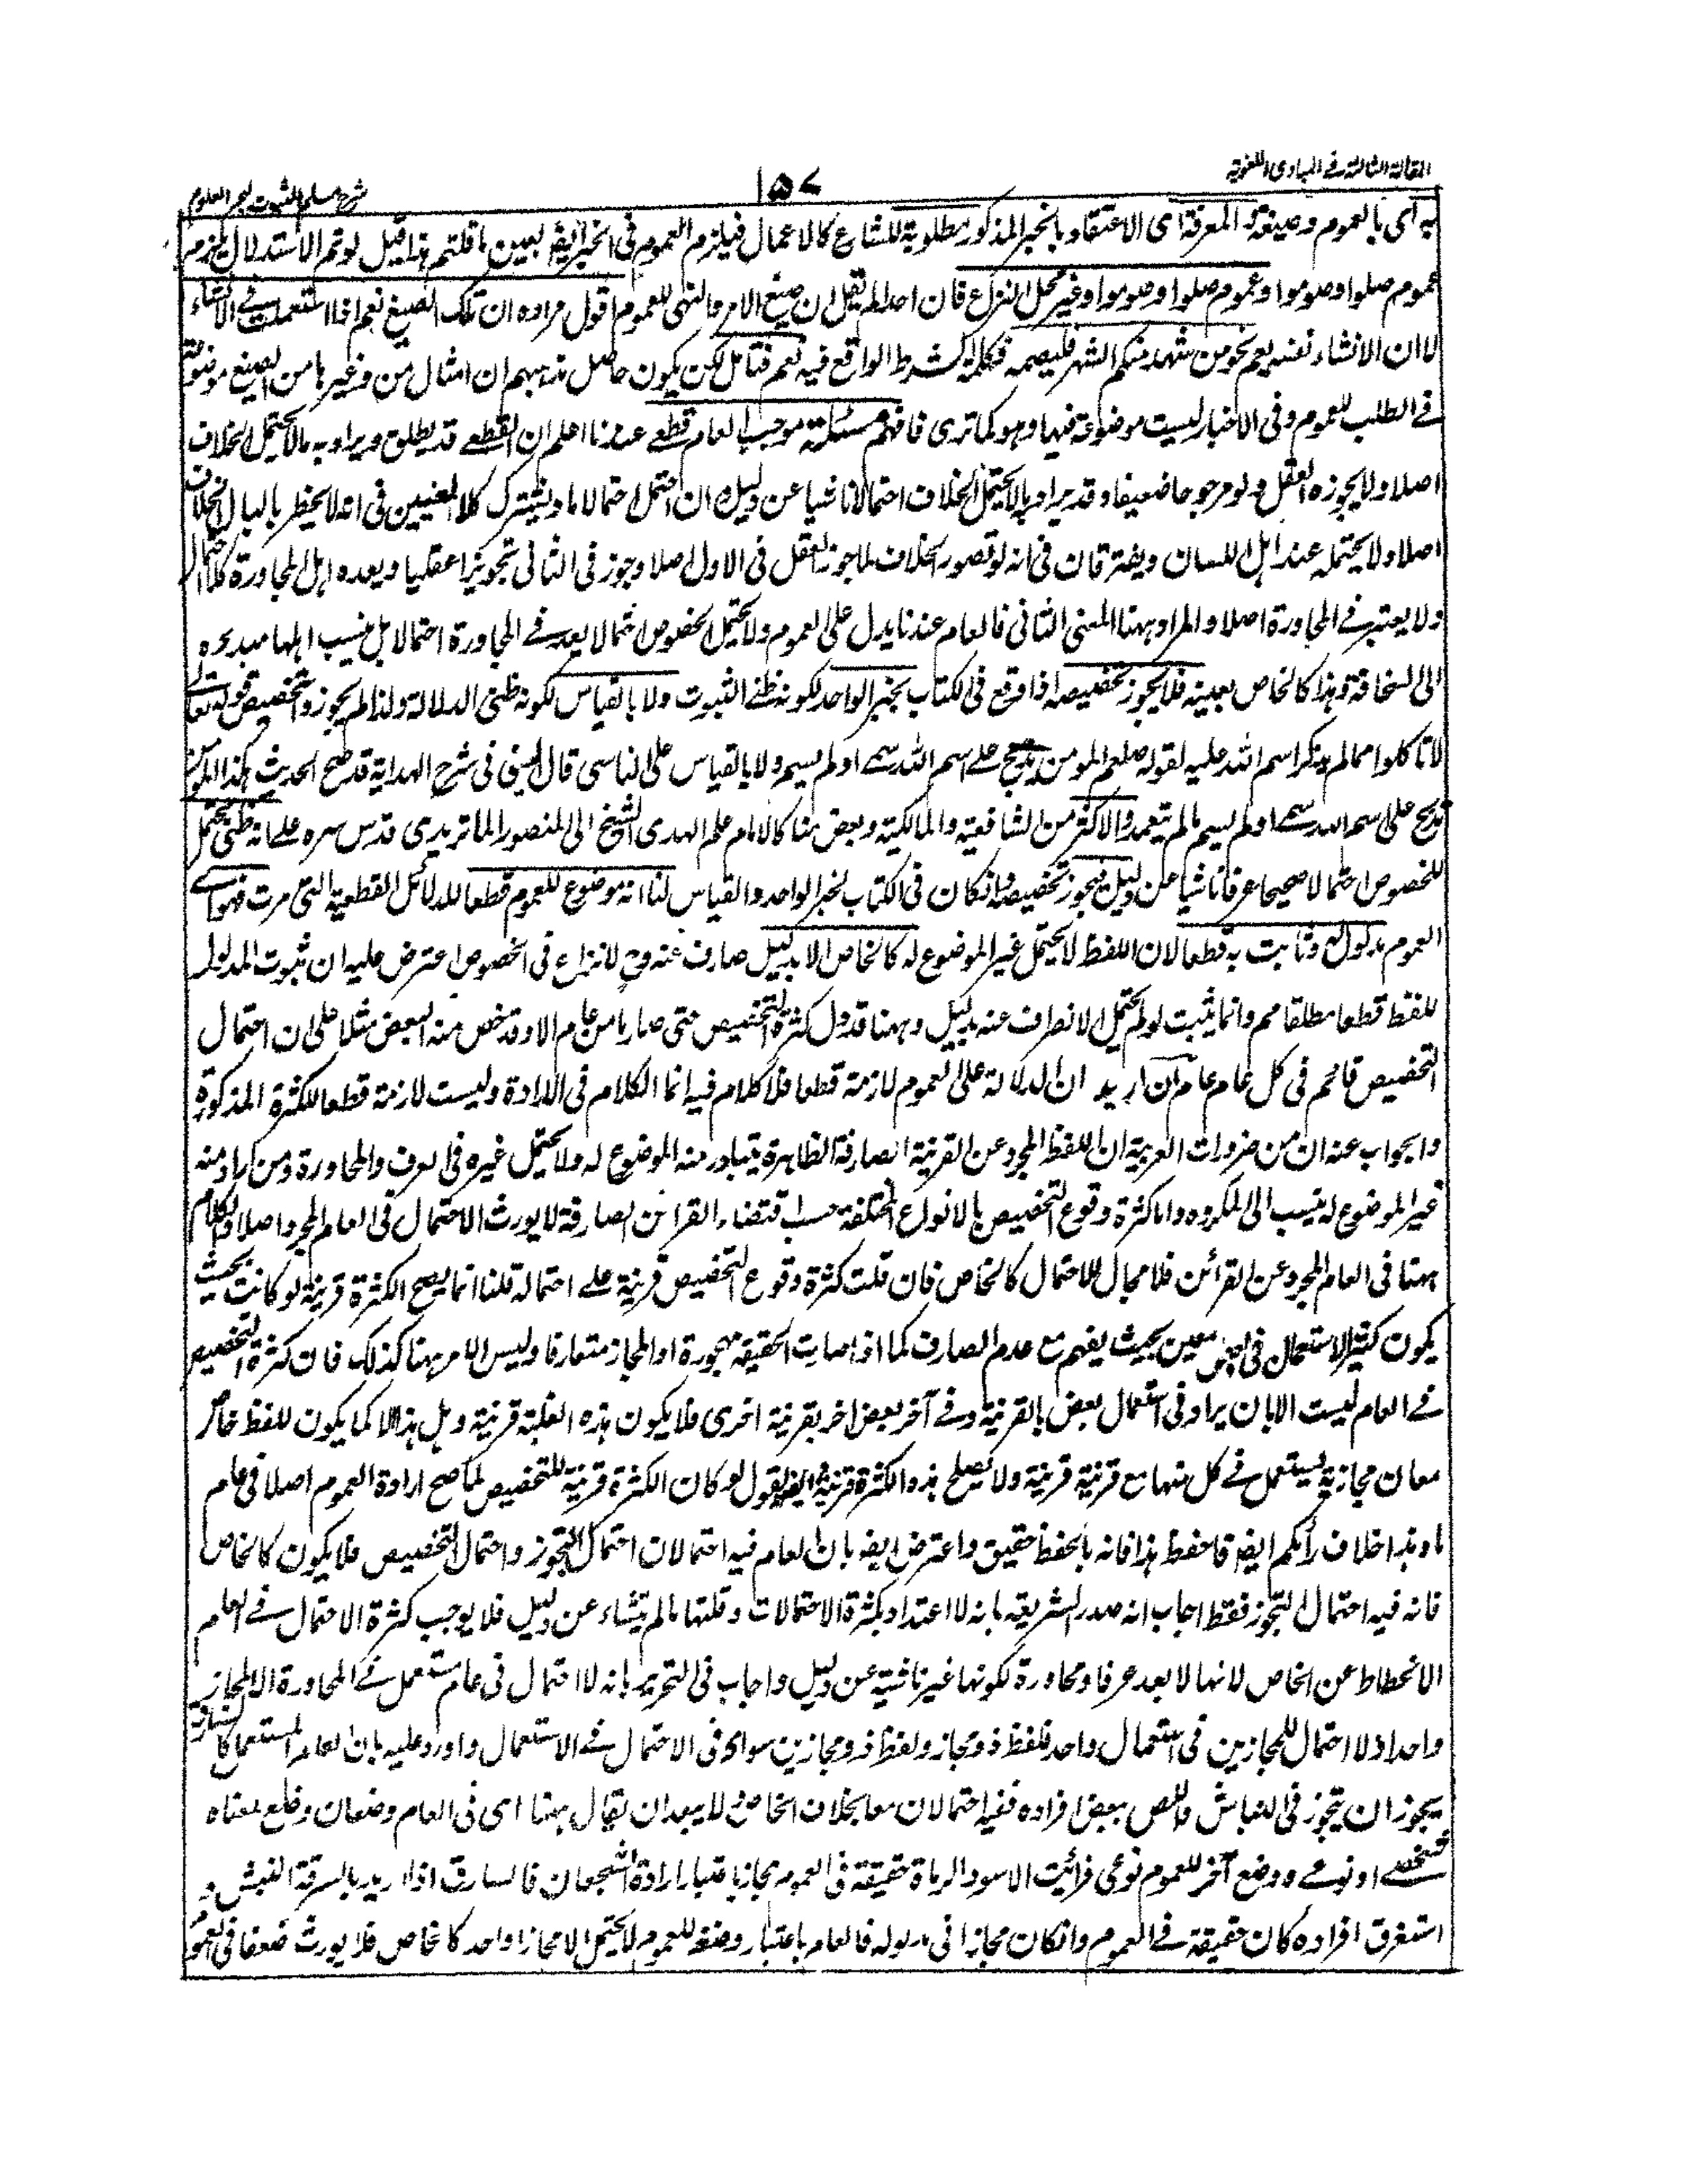 المقالة الثالثة في المبادي اللغوية
١٥٧
شرح مسلم الثبوت لبحر العلوم
به اى بالعموم وصيغة المعرفة اى الاعتقاد بالخبر المذكور مطلوبة للشارع كالاعمال فيلزم العموم فى الخبر ايضا بعين ما قلتم هذا قيل لو تم الاستدلال لزم
عموم صلوا وصوموا وعموم صلوا وصوموا وغير محل النزاع فان احدا لم يقل ان صيغ الامر والنهى للعموم اقول مراده ان تلك الصيغ تعم اذا استعملت فى الانشاء
لا ان الانشاء نفسه يعم نحو من شهد منكم الشهر فليصمه فكلمة الشرط الواقع فيه تعم فتامل لكن يكون حاصل مذهبهم ان امثال من وغيرها من الصيغ موضوعة
فى الطلب للعموم وفى الاخبار ليست موضوعة فيها وهو كما ترى فافهم مسئلة موجب العام قطعى عندنا اعلم ان القطعى قد يطلق ويراد به ما لا يحتمل الخلاف
اصلا ولا يجوزه العقل ولو مرجوحا ضعيفا وقد يراد به ما لا يحتمل الخلاف احتمالا ناشيا عن دليل وان احتمل احتمالا ما ويشترك كلا المعنيين فى انه لا يخطر بالبال الخلاف
اصلا ولا يحتمله عند اهل اللسان ويفترقان فى انه لو تصور الخلاف لما جوز العقل فى الاول اصلا وجوز فى الثانى تجويزا عقليا ويعده اهل المحاورة كلا احتمال
ولا يعتبر فى المحاورة اصلا والمراد ههنا المعنى الثانى فالعام عندنا يدل على العموم ولا يحتمل الخصوص احتمالا يعد فى المحاورة احتمالا بل ينسب اهلها مبديه
الى السخافة وهذا كالخاص بعينه فلا يجوز تخصيصه اذا وقع فى الكتاب بخبر الواحد لكونه ظنى الثبوت ولا بالقياس لكونه ظنى الدلالة ولذا لم يجوزوا تخصيص قوله تعالى
لا تاكلوا مما لم يذكر اسم الله عليه لقوله صلعم المومن يذبح على اسم الله سمى او لم يسم ولا بالقياس على الناسى قال العينى فى شرح الهداية قد صح الحديث هكذا المومن
يذبح على اسم الله سمى او لم يسم ما لم يتعمد والاكثر من الشافعية والمالكية وبعض منا كالامام علم الهدى الشيخ ابى المنصور الماتريدى قدس سره على انه ظنى يحتمل
للخصوص احتمالا صحيحا عرفا ناشيا عن دليل فيجوز تخصيصه وان كان فى الكتاب بخبر الواحد والقياس لنا انه موضوع للعموم قطعا للدلائل القطعية التى مرت فهو اى
العموم مدلول له وثابت به قطعا لان اللفظ لا يحتمل غير الموضوع له كالخاص الا بدليل صارف عنه وح لا نزاع فى الخصوص اعترض عليه ان ثبوت المدلول
للفظ قطعا مطلقا مم وانما يثبت لو لم يحتمل الانصراف عنه بدليل وههنا قد دل كثرة التخصيص حتى صار ما من عام الا وقد خص منه البعض مثلا على ان احتمال
التخصيص قائم فى كل عام عام ان اريد ان الدلالة على العموم لازمة قطعا فلا كلام فيه انما الكلام فى الارادة وليست لازمة قطعا للكثرة المذكورة
والجواب عنه ان من ضرورات العربية ان اللفظ المجرد عن القرينة الصارفة الظاهرة يتبادر منه الموضوع له ولا يحتمل غيره فى العرف والمحاورة ومن اراد منه
غير الموضوع له ينسب الى المكروه واما كثرة وقوع التخصيص بالانواع المختلفة حسب اقتضاء القرائن الصارفة لا يورث الاحتمال فى العام المجرد اصلا والكلام
ههنا فى العام المجرد عن القرائن فلا مجال للاحتمال كالخاص فان قلت كثرة وقوع التخصيص قرينة على احتماله قلنا انما يصح الكثرة قرينة لو كانت بحيث
يكون كثير الاستعمال فى بعض معين بحيث يفهم مع عدم الصارف كما اذا صارت الحقيقة مهجورة او المجاز متعارفا وليس الامر ههنا كذلك فان كثرة التخصيص
فى العام ليست الا بان يراد فى استعمال بعض بالقرينة وفى آخر بعض اخر بقرينة اخرى فلا يكون هذه الغلبة قرينة وهل هذا الا كما يكون للفظ خاص
معان مجازية يستعمل فى كل منها مع قرينة قرينة ولا تصلح هذه الكثرة قرينة وايضا نقول لو كان الكثرة قرينة للتخصيص لما صح ارادة العموم اصلا فى عام
ما وهذا خلاف رأيكم ايضا فاحفظ هذا فانه بالحفظ حقيق واعترض ايضا بان العام فيه احتمالان احتمال التجوز واحتمال التخصيص فلا يكون كالخاص
فانه فيه احتمال التجوز فقط اجاب انه صدر الشريعة بانه لا اعتداد بكثرة الاحتمالات وقلتها ما لم تنشاء عن دليل فلا يوجب كثرة الاحتمال فى العام
الانحطاط عن الخاص لانها لا بعد عرفا ومحاورة لكونها غير ناشية عن دليل واجاب فى التحرير بانه لا احتمال فى عام مستعمل فى المحاورة الا المجاز
واحد اذ لا احتمال للمجازين فى استعمال واحد فلفظ ذو مجاز ولفظ ذو مجازين سواء فى الاحتمال فى الاستعمال واورد عليه بان العام المستعمل كالسارق
يجوز ان يتجوز فى النباش واللص ببعض افراده ففيه احتمالان معا بخلاف الخاص ولا يبعد ان يقال ههنا اى فى العام وضعان وضع لمعناه
شخصى او نوعى ووضع آخر للعموم نوعى فرأيت الاسود الرماة حقيقة فى العموم مجاز باعتبار ارادة الشجعان فالسارق اذا اريد بالسرقة النبش و
استغرق افراده كان حقيقة فى العموم وان كان مجازا فى مدلوله فالعام باعتبار وضعه للعموم لا يحتمل الا مجازا واحد كالخاص فلا يورث ضعفا فى العموم